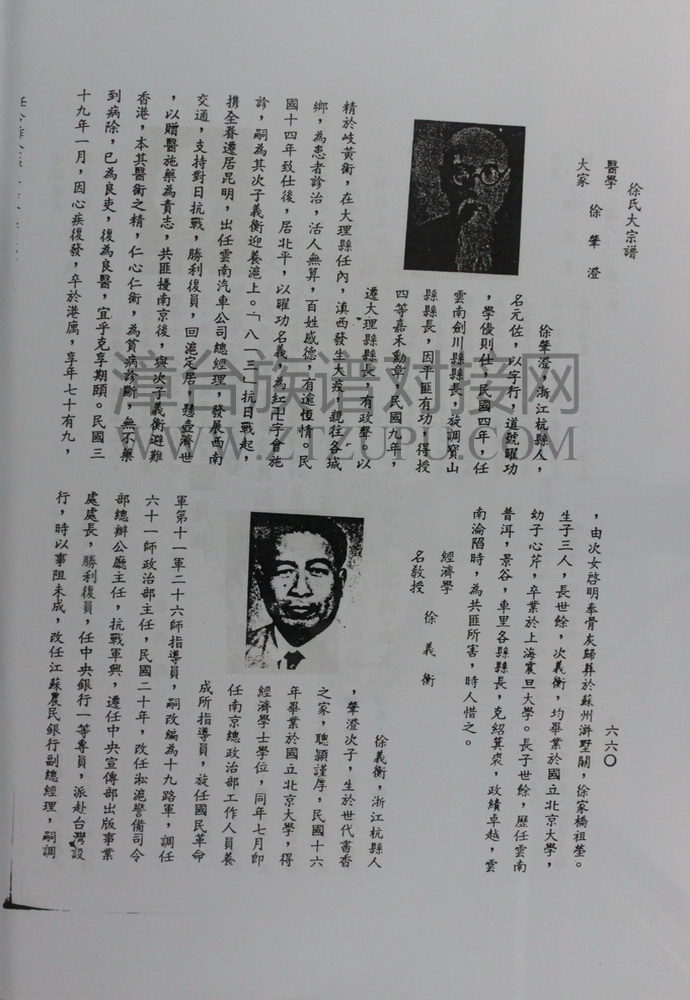 徐氏大宗譜
醫學
大家
徐肇澄
徐肇澄，浙江杭縣人，
名元佐，以字行，道號曜功
，學優則仕，民國四年，任
雲南劍川縣縣長，旋調寶山
縣縣長，因平匪有功，得授
四等嘉禾勳章，民國九年，
遷大理縣縣長，有政聲。以
精於岐黃術，在大理縣任內，滇西發生大疫，親往各城
鄉，為患者診治，活人無算，百姓感德，有逾恆情。民
國十四年致仕後，居北平，以曜功名義，為紅卍字會施
診，嗣為其次子義衡迎養滬上。「八一三」抗日戰起，
携全眷遷居昆明，出任雲南汽車公司總經理，發展西南
交通，支持對日抗戰，勝利復員，回滬定居，懸壺濟世
，以贈醫施藥為責志，共匪擾南京後，與次子義衡避難
香港，本其醫術之精，仁心仁術，為貧病診斷，無不藥
到病除，已為良吏，復為良醫，宜乎克享期頤。民國三
十九年一月，因心疾復發，卒於港寓，享年七十有九，
六六〇
，由次女啓明奉骨灰歸葬於蘇州滸墅關，徐家橋祖塋。
生子三人，長世餘，次義衡，均畢業於國立北京大學，
幼子心芹，卒業於上海震旦大學。長子世餘，歷任雲南
普洱，景谷，車里各縣縣長，克紹箕裘，政績卓越，雲
南淪陷時，為共匪所害，時人惜之。
經濟學
名教授
徐義衡
徐義衡，浙江杭縣人
，肇澄次子，生於世代書香
之家，聰穎謹厚，民國十六
年畢業於國立北京大學，得
經濟學士學位，同年七月卽
任南京總政治部工作人員養
成所指導員，旋任國民革命
軍第十一軍二十六師指導員，嗣改編為十九路軍，調任
六十一師政治部主任，民國二十年，改任淞滬警備司令
部總辦公廳主任，抗戰軍興，遷任中央宣傳部出版事業
處處長，勝利復員，任中央銀行一等專員，派赴台灣設
行，時以事阻未成，改任江蘇農民銀行副總經理，嗣調
漳台族谱对接网
WWW.ZTZUPU.COM